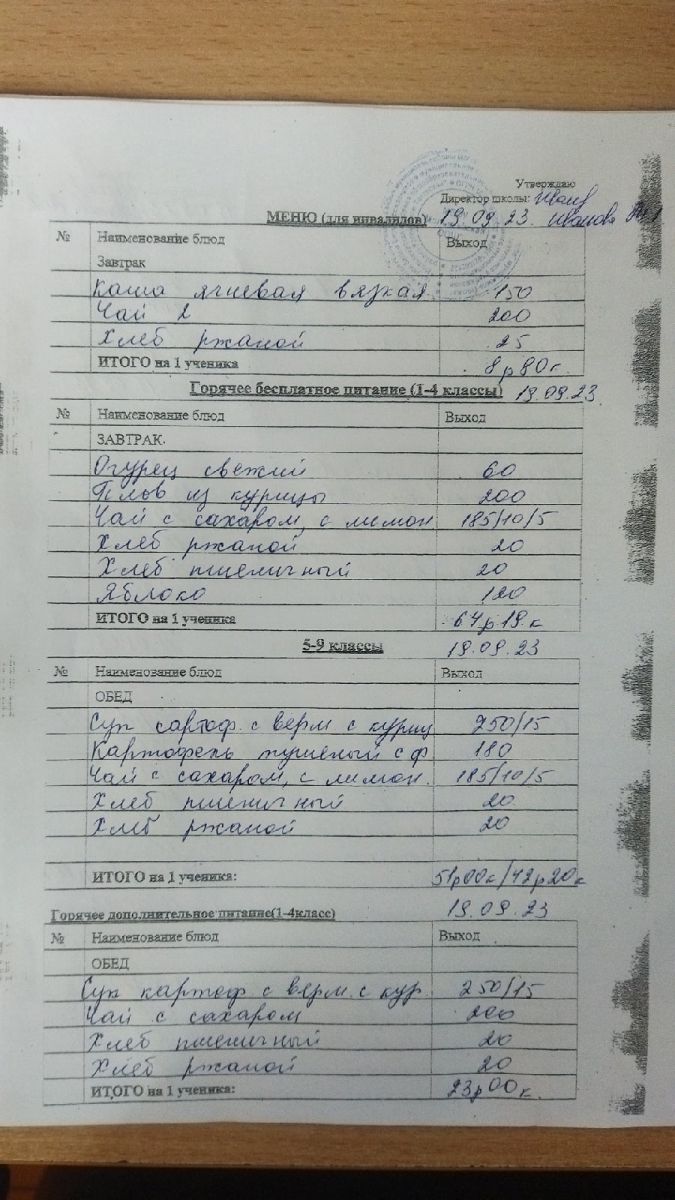 Утверждаю
Директор школы:
МЕНЮ (для инвалидов) 19.09.23. Иванова
№ Наименование блюд Выход
Завтрак
Каша ячневая вязкая 150
Чай 200
Хлеб ржаной 25
ИТОГО на 1 ученика 8р90к.
Горячее бесплатное питание (1-4 классы) 19.09.23.
№ Наименование блюд Выход
ЗАВТРАК
Огурец свежий 60
Плов из курицы 200
Чай с сахаром, с лимон 185/10/5
Хлеб ржаной 20
Хлеб пшеничный 20
Яблоко 120
ИТОГО на 1 ученика 64р19к
5-9 классы 19.09.23
№ Наименование блюд Выход
ОБЕД
Суп картоф. с верм с куриц 250/15
Картофель тушеный с ф 180
Чай с сахаром, с лимон. 185/10/5
Хлеб пшеничный 20
Хлеб ржаной 20
ИТОГО на 1 ученика: 51р00к/42р20к
Горячее дополнительное питание(1-4класс) 19.09.23
№ Наименование блюд Выход
ОБЕД
Суп картоф с верм. с кур. 250/15
Чай с сахаром 200
Хлеб пшеничный 20
Хлеб ржаной 20
ИТОГО на 1 ученика: 23р00к.